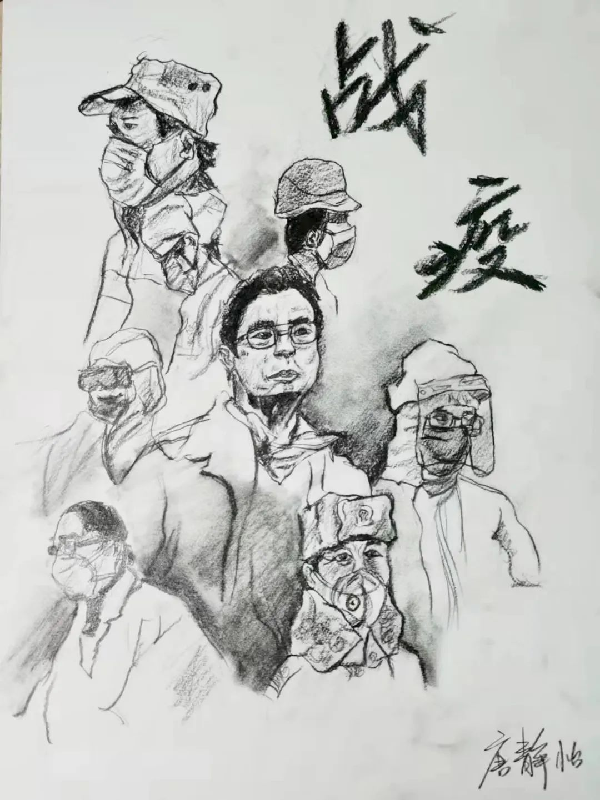 战
疫
唐静怡